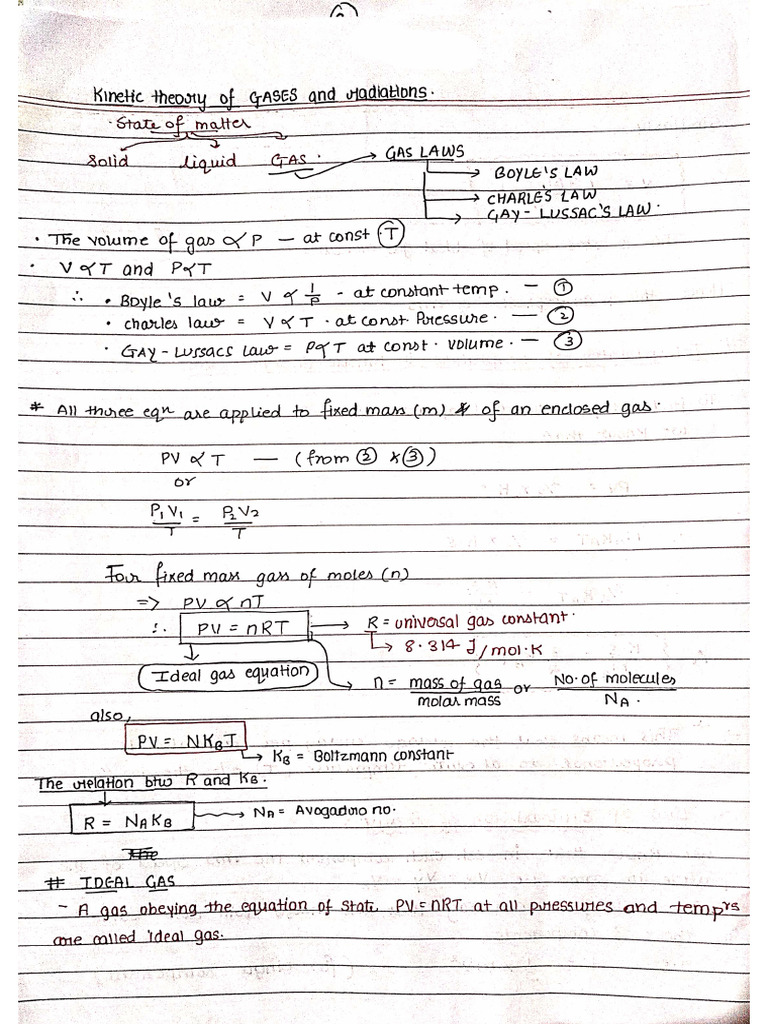 2
Kinetic theory of GASES and radiations.
• State of matter
Solid liquid GAS. → GAS LAWS
→ BOYLE'S LAW
→ CHARLE'S LAW
→ GAY-LUSSAC'S LAW.
• The volume of gas ∝ P — at const (T)
• V∝T and P∝T
∴ • BOYLE'S law = V ∝ 1/P - at constant temp. — ①
• charles law = V∝T • at const Pressure. — ②
• GAY-LUSSACS LAW = P∝T at const. volume. — ③
* All three eqn are applied to fixed mass (m) of an enclosed gas.
PV ∝ T — (from ② & ③)
or
P₁V₁/T = P₂V₂/T
For fixed mass gas of moles (n)
=> PV ∝ nT
∴ PV = nRT → R = universal gas constant.
↳ 8.314 J/mol.K
Ideal gas equation
n = mass of gas/molar mass or No. of molecules/NA.
also,
PV = NKBT
↳ KB = Boltzmann constant
The relation btw R and KB.
R = NAKB → NA = Avogadro no.
The
# IDEAL GAS
- A gas obeying the equation of state PV = nRT at all pressures and temprs
are called ideal gas.